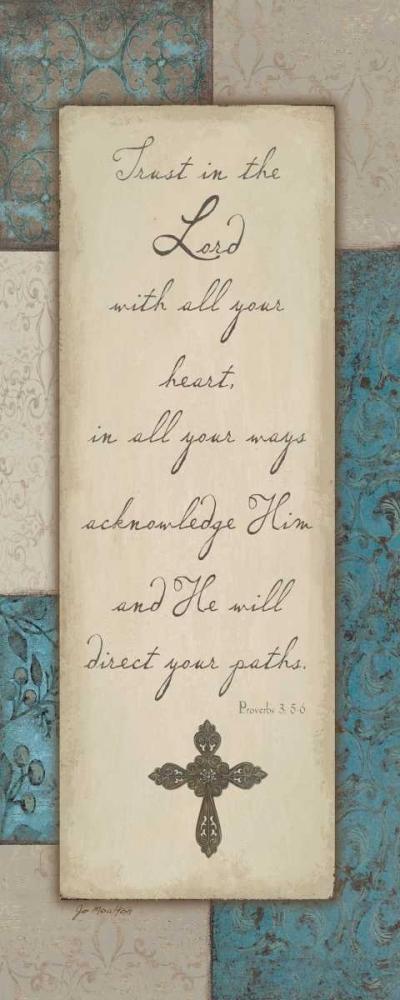 Trust in the
Lord
with all your
heart,
in all your ways
acknowledge Him
and He will
direct your paths.
Proverbs 3:5-6
Jo Moulton